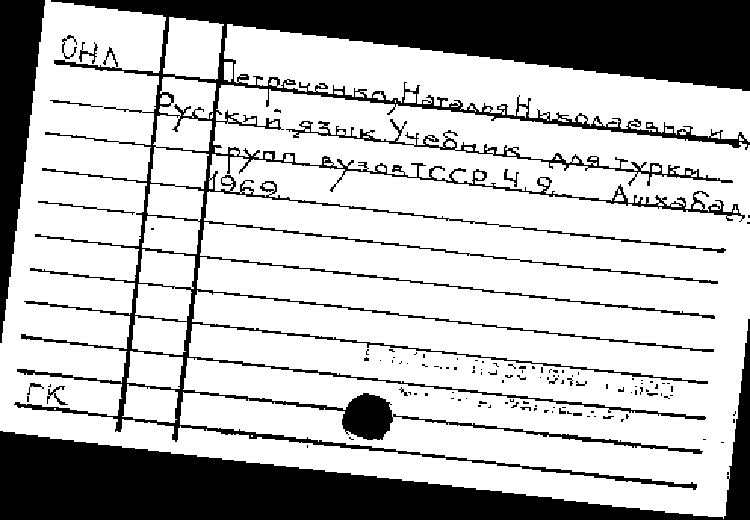 ОНЛ
Петреченко, Наталья Николаевна и д
Русский язык Учебник для туркм.
групп вузов ТССР. Ч. 2. Ашхабад,
1969.
ГК